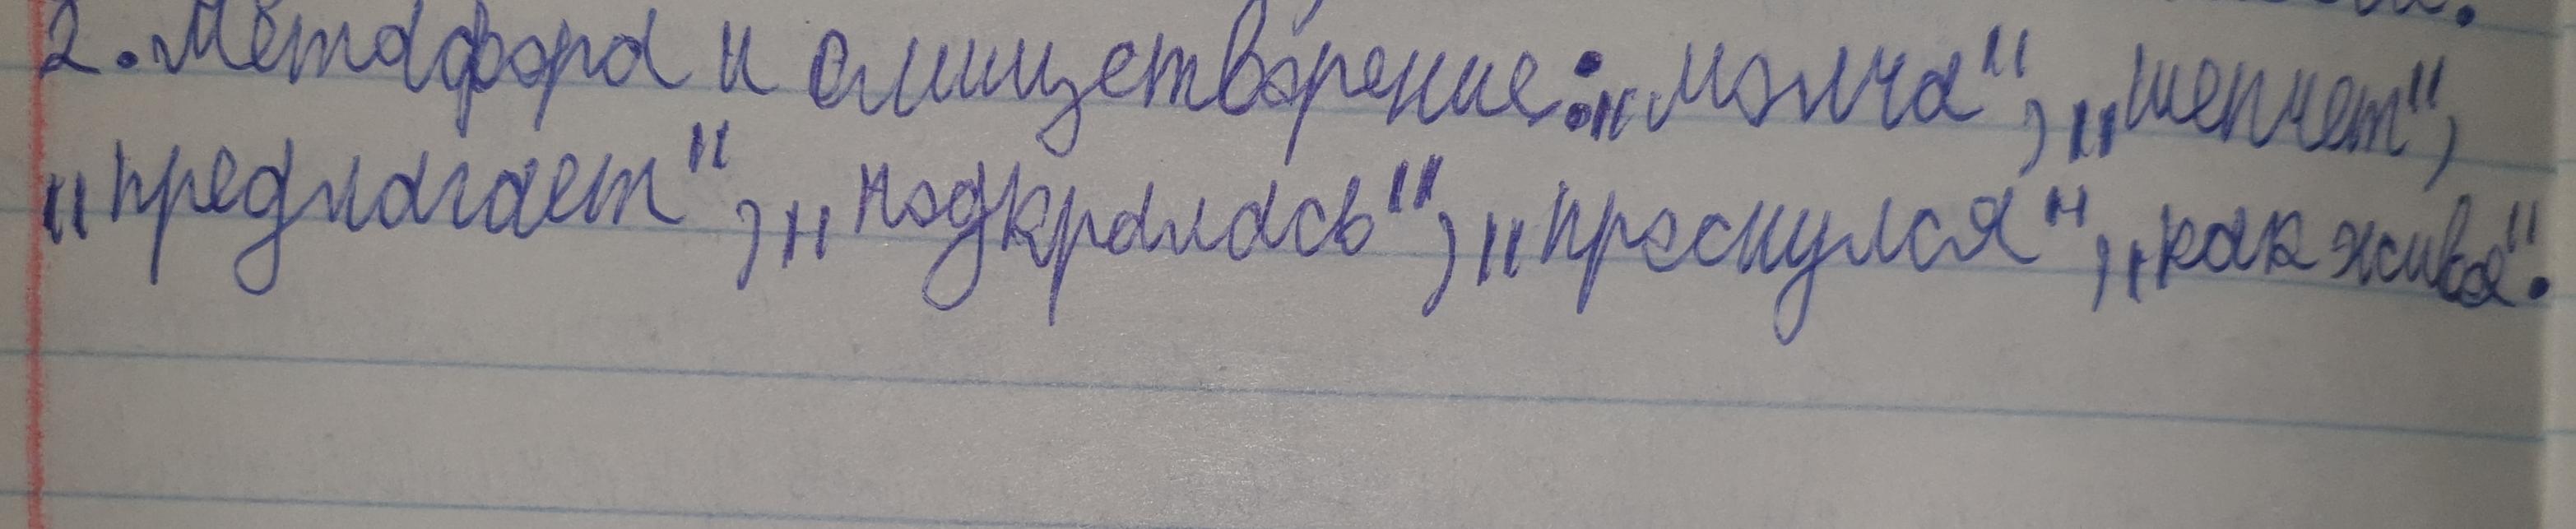 2. Метафора и олицетворение: „молча“, „шепчет“,
„предлагает“, „подкралась“, „проснулся“, „как жива“.